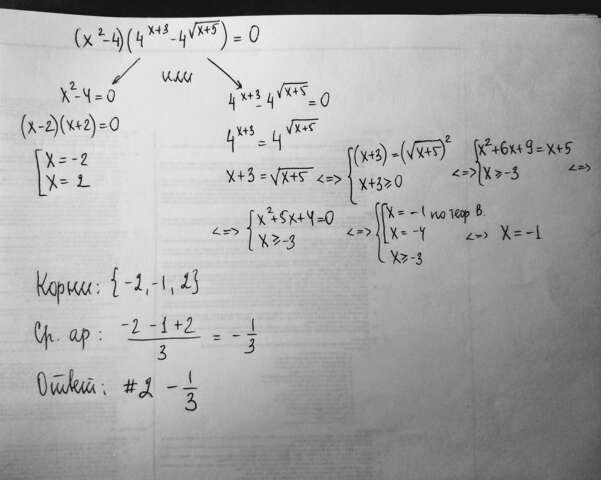 (x²-4)(4^(x+3) - 4^√(x+5)) = 0
или
x²-4=0
(x-2)(x+2)=0
[x=-2
x=2
4^(x+3) - 4^√(x+5) = 0
4^(x+3) = 4^√(x+5)
x+3 = √(x+5) <=> {(x+3) = (√(x+5))² x+3≥0 <=> {x²+6x+9=x+5 x≥-3 <=>
<=> {x²+5x+4=0 x≥-3 <=> {[x=-1 по теор В. x=-4 x≥-3 <=> x=-1
Корни: {-2, -1, 2}
Ср. ар: (-2-1+2)/3 = -1/3
Ответ: #2 -1/3